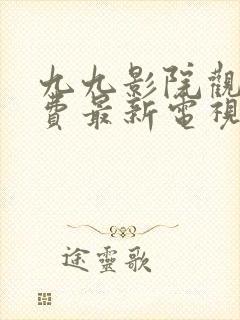 九九影院觀
費最新電視
途靈歌